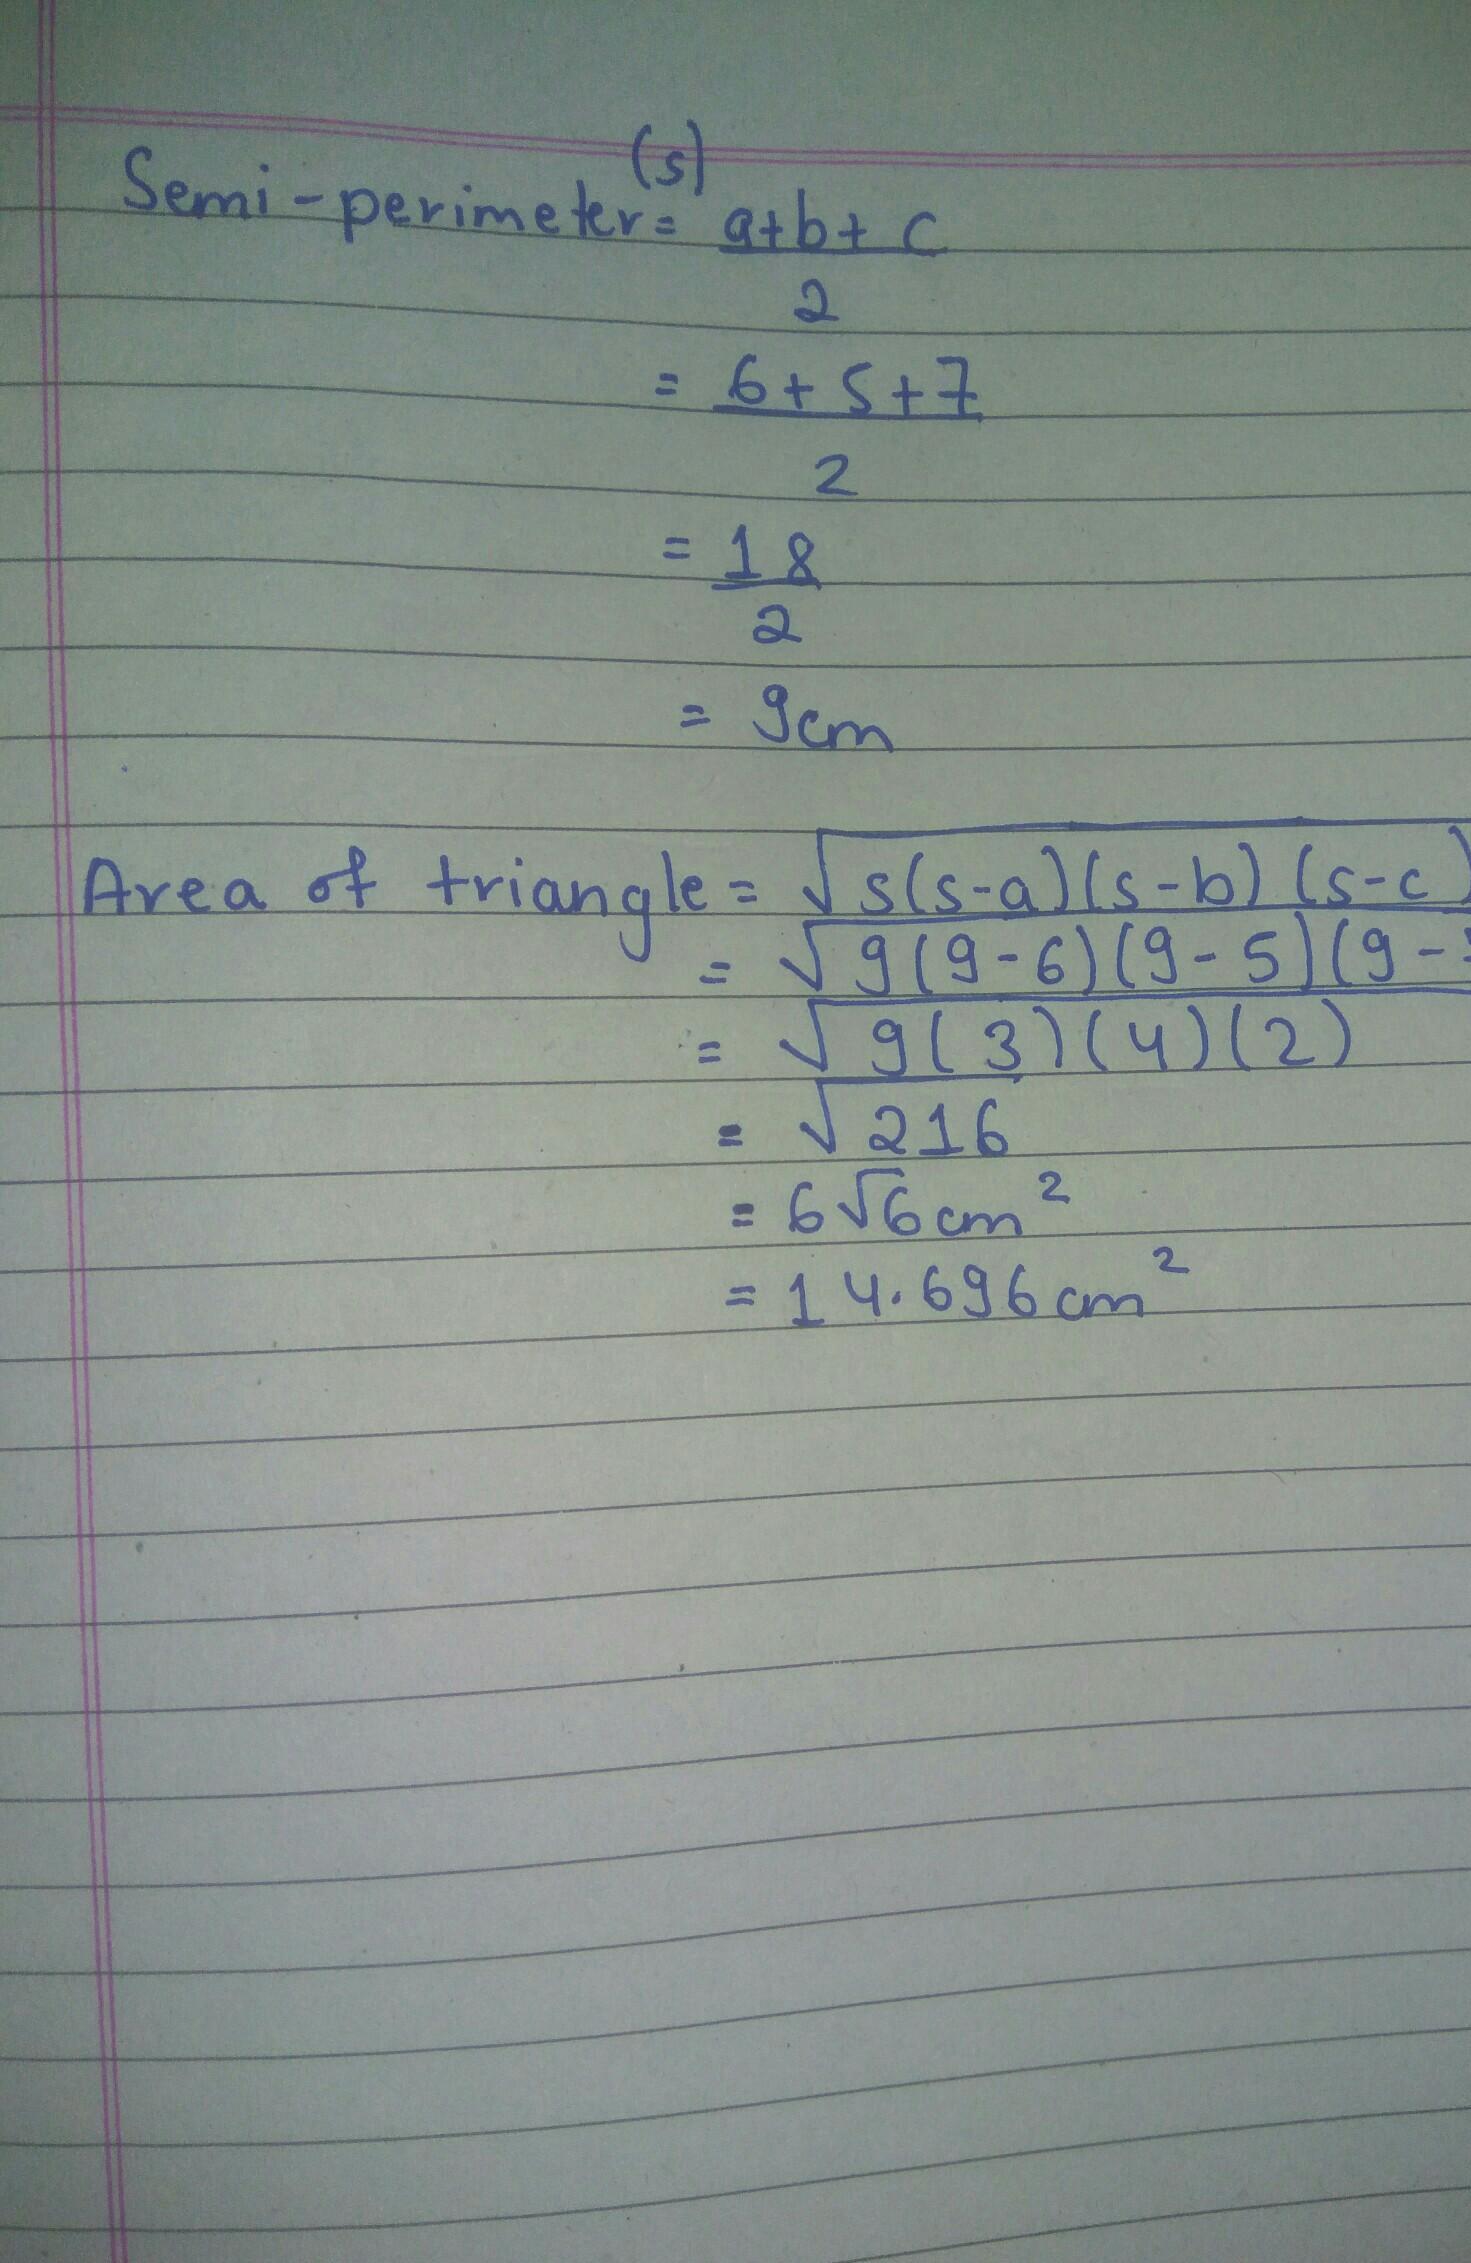 (s)
Semi-perimeter = a+b+c
2
= 6+5+7
2
= 18
2
= 9cm
Area of triangle = √s(s-a)(s-b)(s-c)
= √9(9-6)(9-5)(9-
= √9(3)(4)(2)
= √216
= 6√6cm²
= 14.696cm²